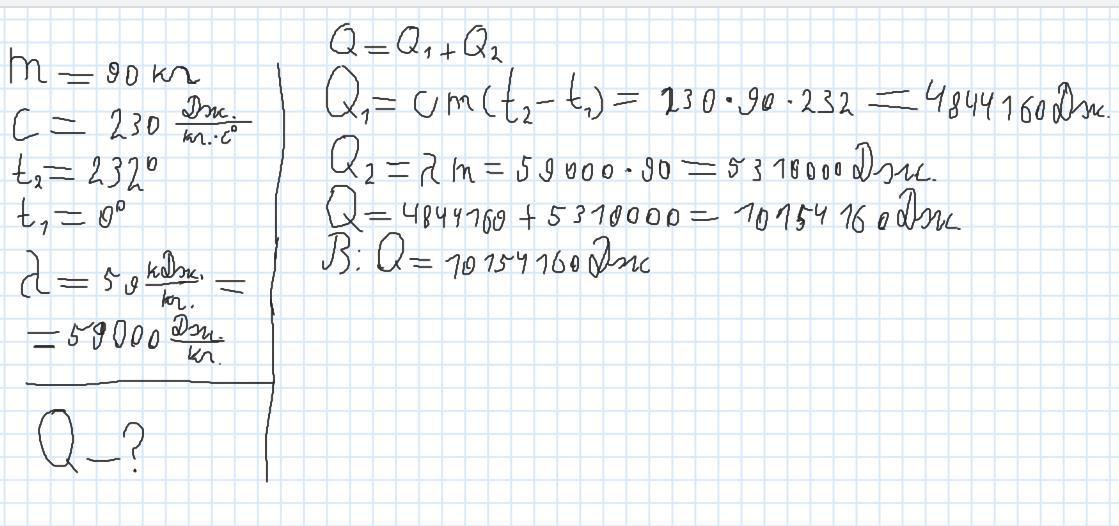 m = 90 кг
c = 230 Дж./кг.·c°
t₂ = 232°
t₁ = 0°
λ = 59 кДж./кг. =
= 59000 Дж./кг.
Q – ?
Q = Q₁ + Q₂
Q₁ = cm(t₂ – t₁) = 230·90·232 = 4844160 Дж.
Q₂ = λm = 59000·90 = 5310000 Дж.
Q = 4844160 + 5310000 = 10154160 Дж
В: Q = 10154160 Дж